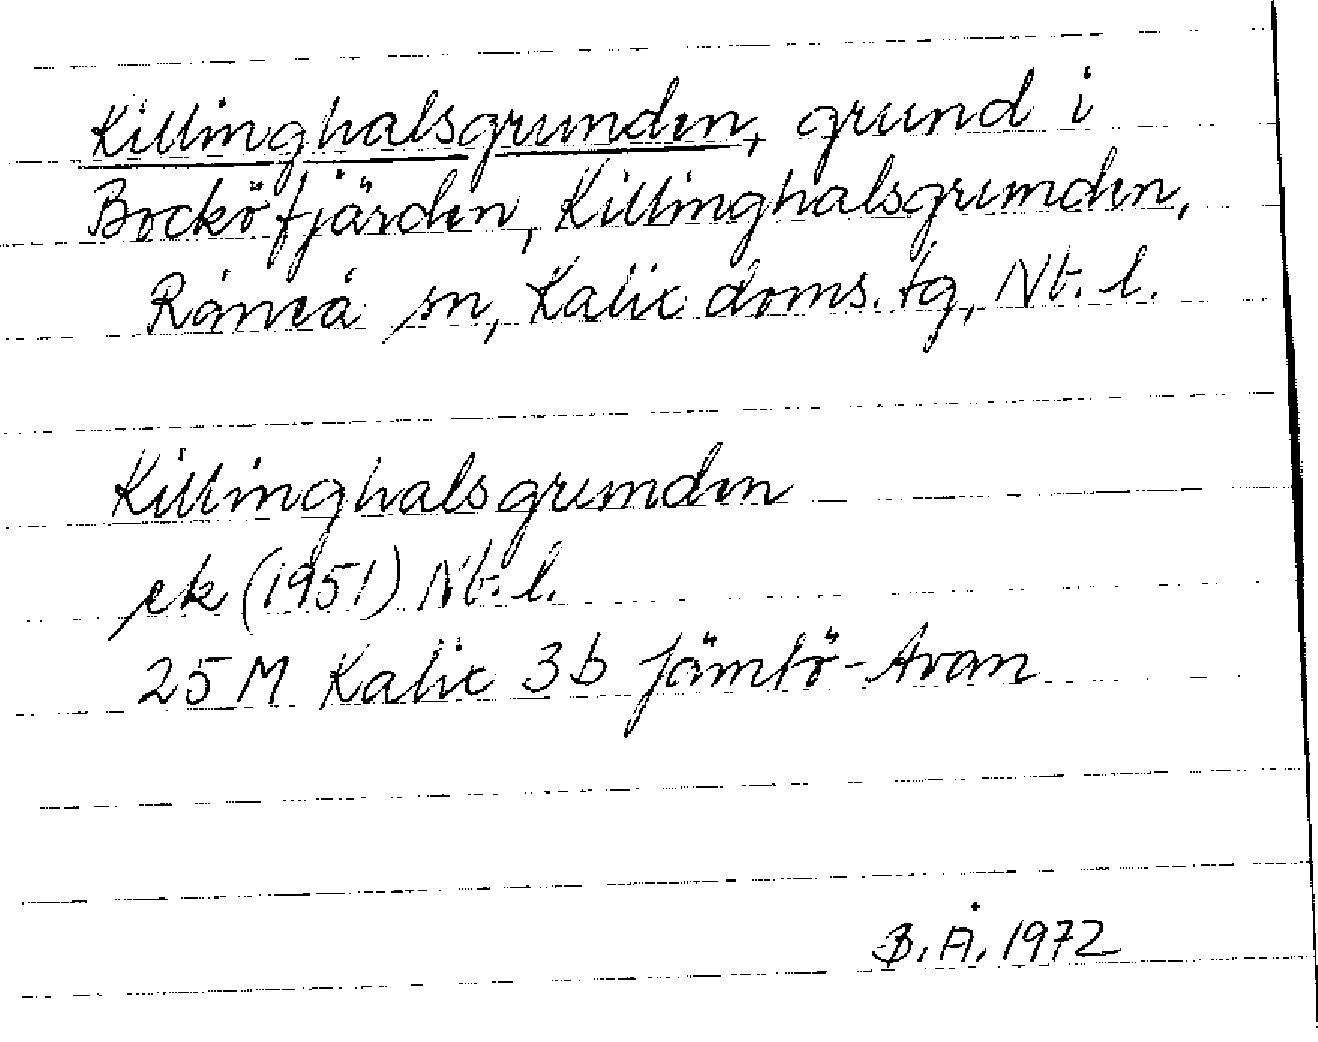 Killinghalsgrunden, grund i
Bocköfjärden, Killinghalsgrunden,
Råneå sn, Kalix doms. tg, Nb. l.
Killinghalsgrunden
ek (1951) Nb. l.
25 M Kalix 3b Jämtö-Avan
B. Å. 1972